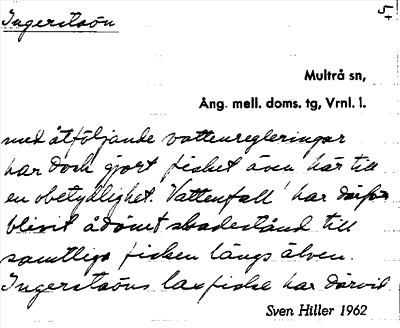 Ingerstaön
5
Multrå sn,
Ång. mell. doms. tg, Vrnl. l.
med åtföljande vattenregleringar
har dock gjort fisket även här till
en obetydlighet. Vattenfall har därför
blivit ådömt skadestånd till
samtliga fisken längs älven.
Ingerstaöns laxfiske har därvid
Sven Hiller 1962